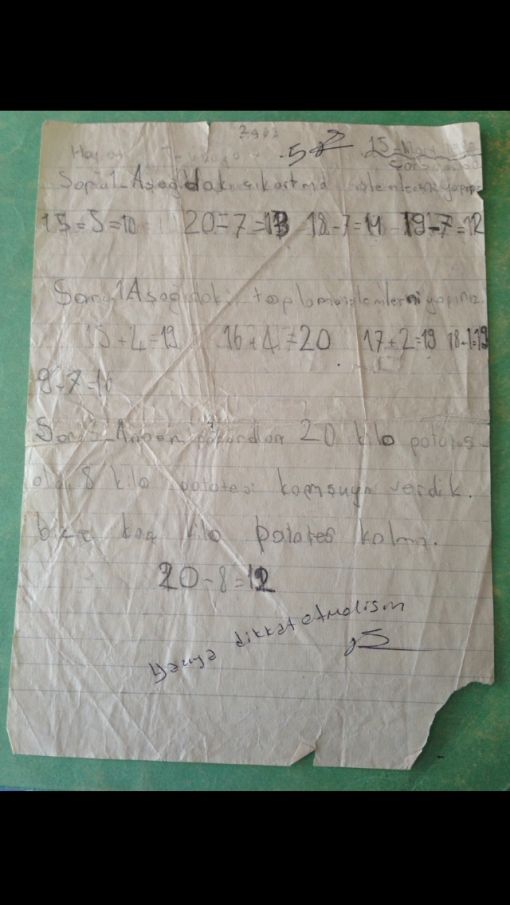 15-Mart
Soru1-Aşağıdaki çıkartma işlemlerini yapınız
15=5=10 20=7=13 18-7=11 19-7=12
Soru1Aşağıdaki toplama işlemlerini yapınız
15+4=19 16+4=20 17+2=19 18+1=19
9+7=16
20 kilo patates
8 kilo patatesi komşuya verdik.
bize kaç kilo patates kalmış.
20-8=12
Yazıya dikkat etmelisin